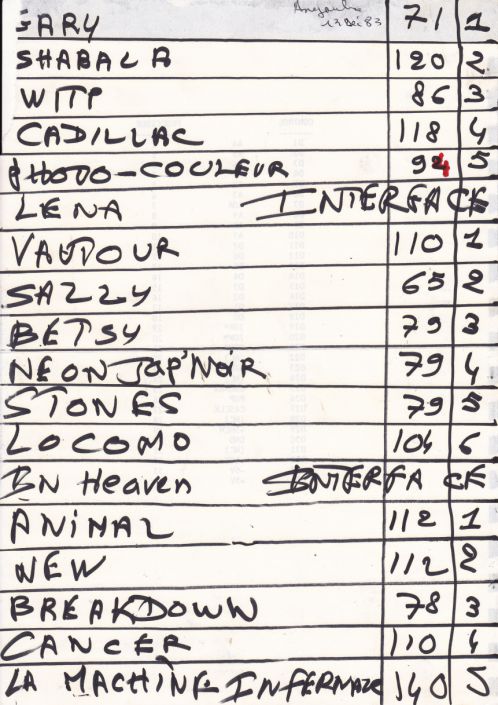 GARY 71 1
13 Déc 83
SHABALA 120 2
WITP 86 3
CADILLAC 118 4
PHOTO-COULEUR 94 5
LENA INTERFACE
VAUDOUR 110 1
SAZZY 65 2
BETSY 79 3
NEON JAP'NOIR 79 4
STONES 79 5
LOCOMO 104 6
IN Heaven INTERFACE
ANIMAL 112 1
NEW 112 2
BREAKDOWN 78 3
CANCER 110 4
LA MACHINE INFERNALE 140 5